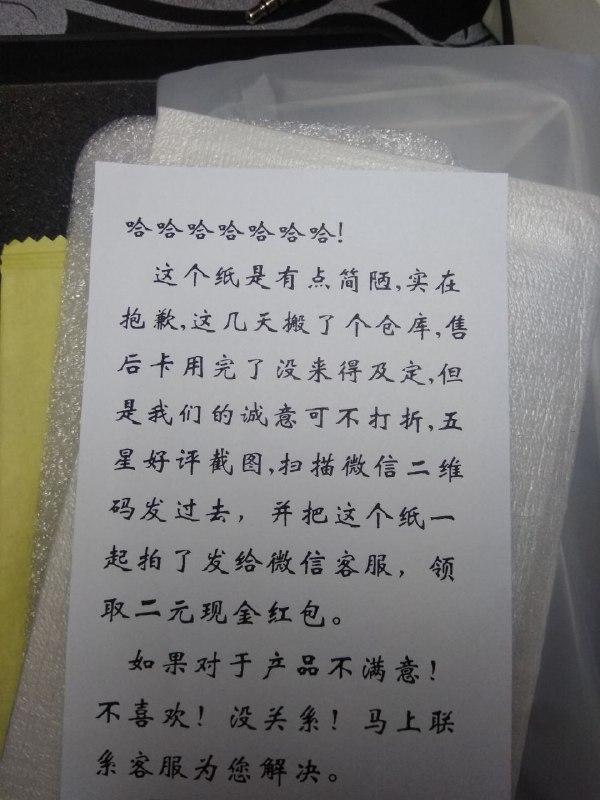 哈哈哈哈哈哈哈!
这个纸是有点简陋,实在
抱歉,这几天搬了个仓库,售
后卡用完了没来得及定,但
是我们的诚意可不打折,五
星好评截图,扫描微信二维
码发过去，并把这个纸一
起拍了发给微信客服，领
取二元现金红包。
如果对于产品不满意!
不喜欢!没关系!马上联
系客服为您解决。